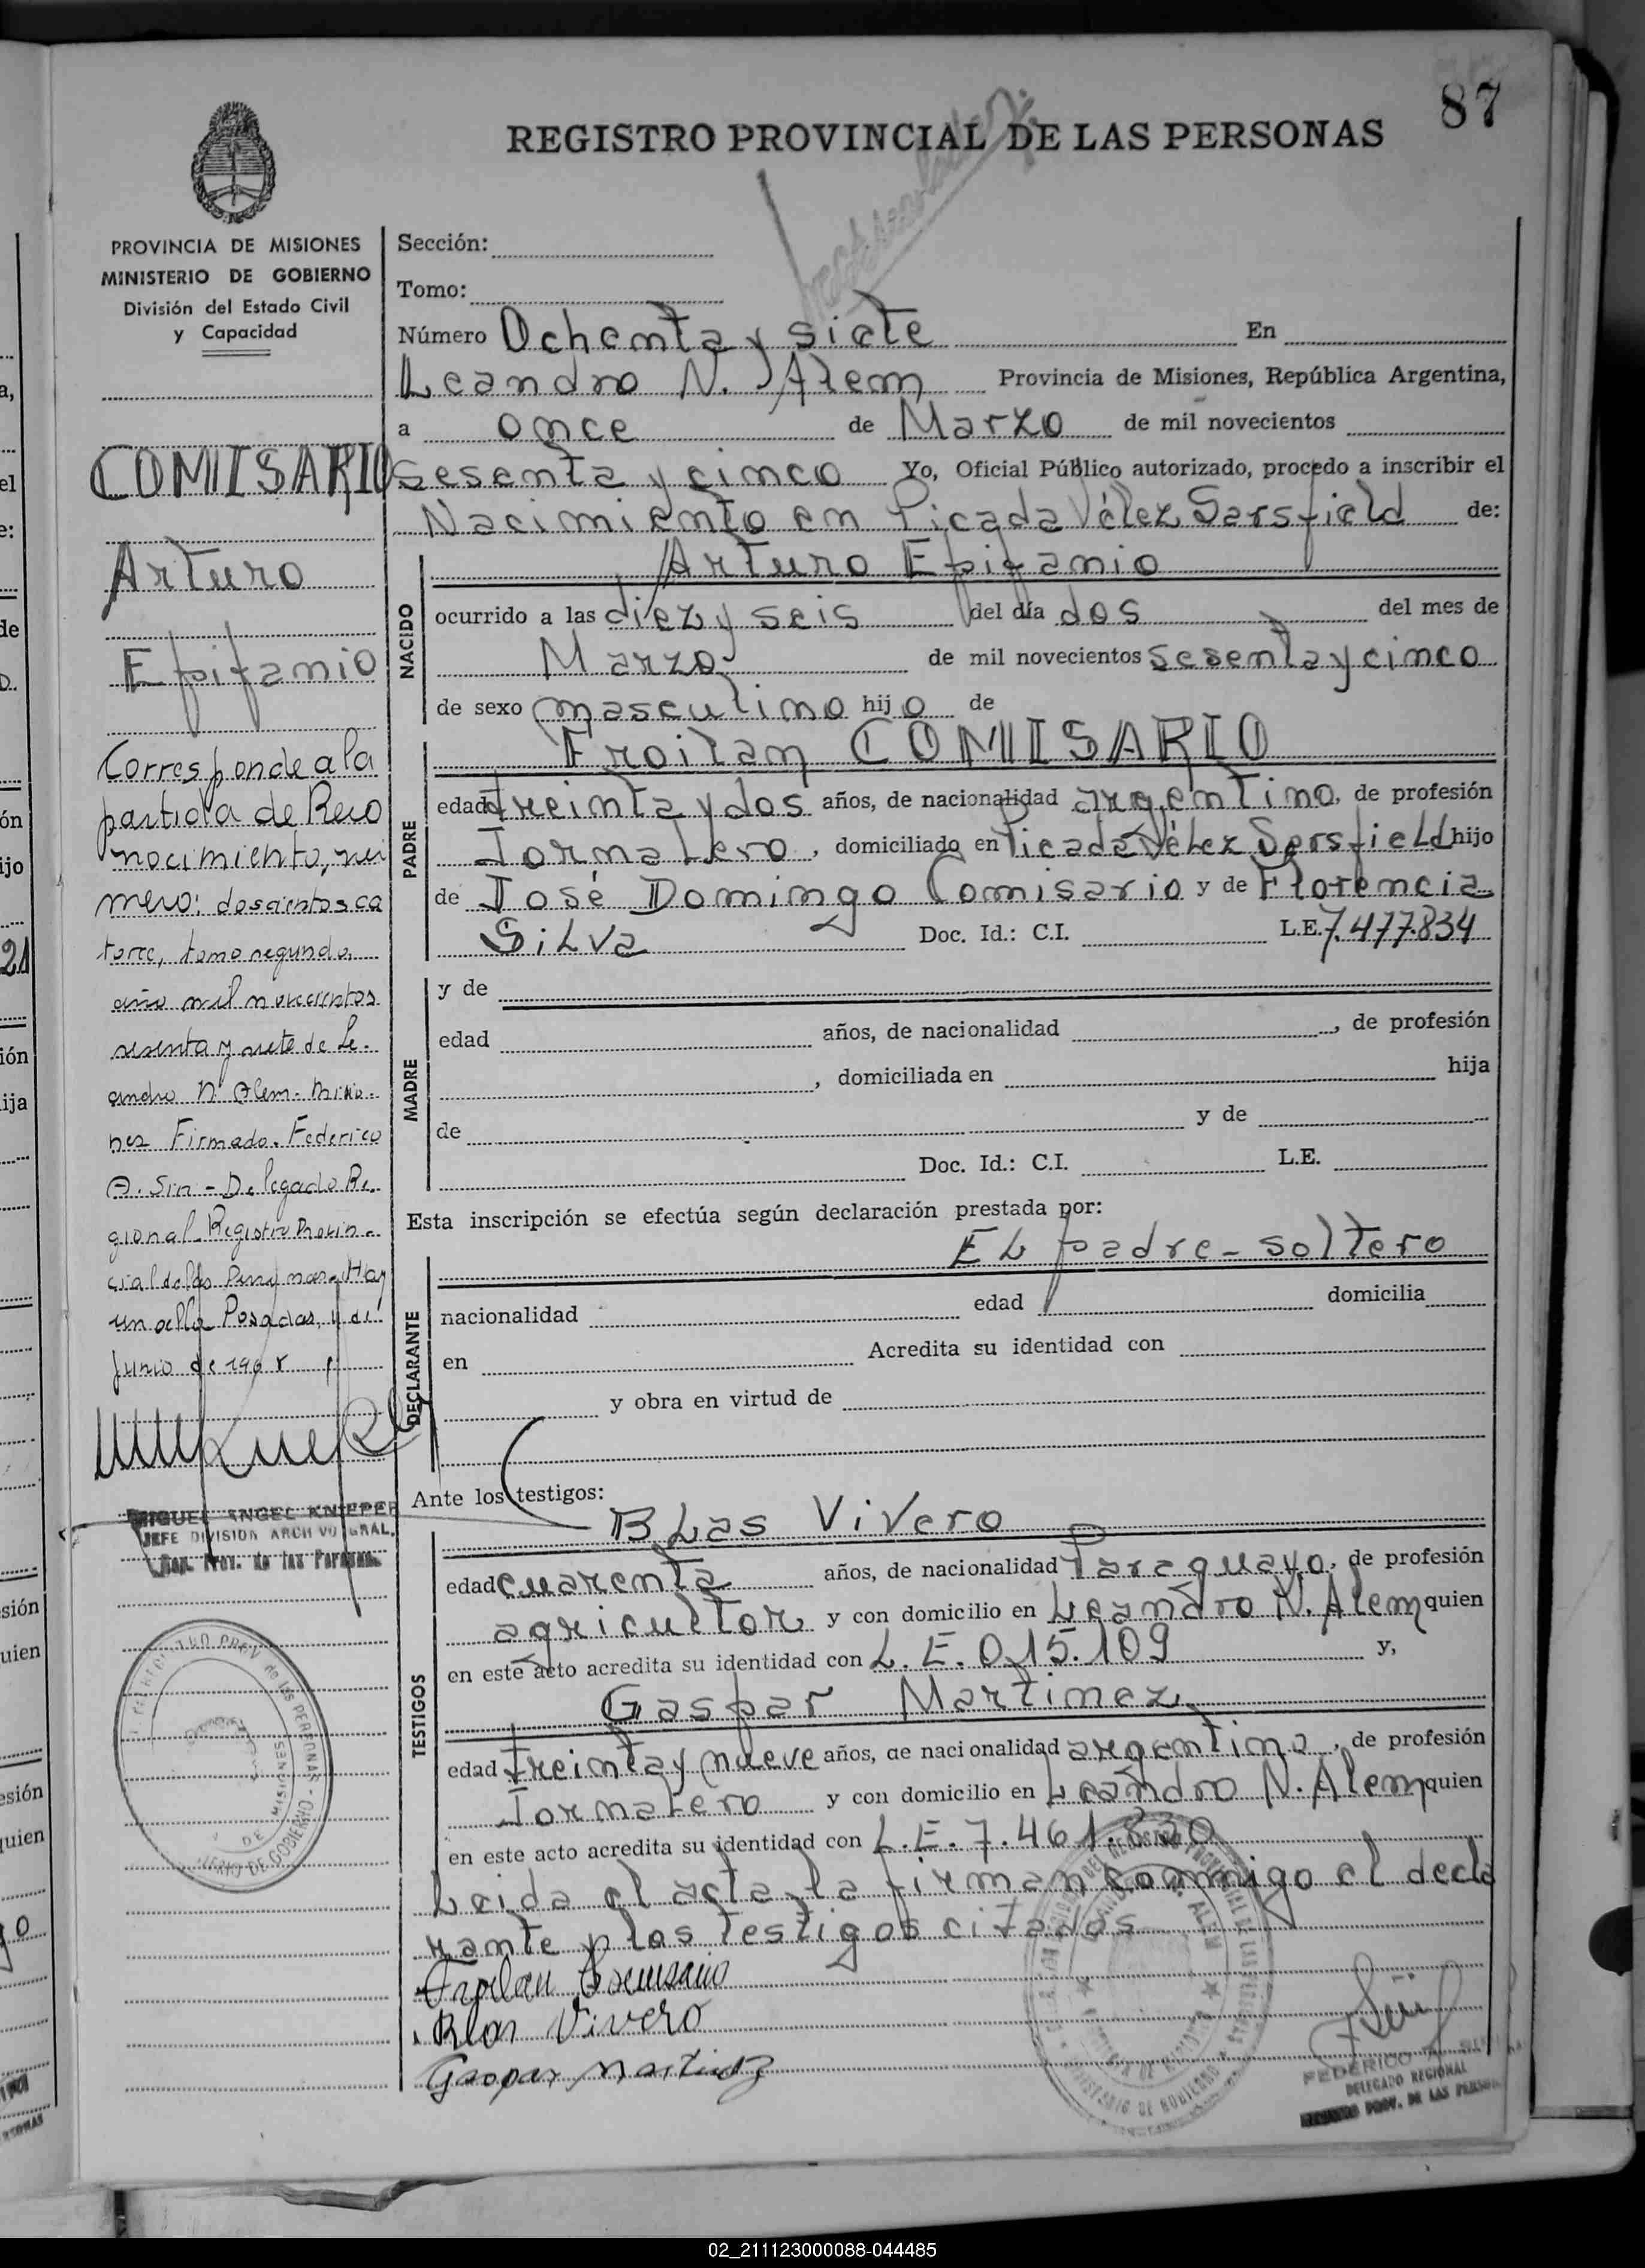 87
REGISTRO PROVINCIAL DE LAS PERSONAS
PROVINCIA DE MISIONES
MINISTERIO DE GOBIERNO
División del Estado Civil
y Capacidad
COMISARIO
Arturo
Epifanio
Corresponde a la
partida de Reco
nocimiento, nú
mero: doscientos ca
torce, tomo segundo,
año mil novecientos
sesenta y siete de Le-
andro N. Alem - Misio-
nes Firmado. Federico
A. Sin - Delegado Re-
gional Registro Provin-
cial de las Personas. Hay
un sello Posadas, 4 de
Junio de 1968
MIGUEL ANGEL KNIEPER
JEFE DIVISION ARCHIVO GRAL.
Reg. Prov. de las Personas
Sección:
Tomo:
Número Ochenta y siete En
Leandro N. Alem Provincia de Misiones, República Argentina,
a once de Marzo de mil novecientos
sesenta y cinco Yo, Oficial Público autorizado, procedo a inscribir el
Nacimiento en Picada Vélez Sarsfield de:
NACIDO
Arturo Epifanio
ocurrido a las diez y seis del día dos del mes de
Marzo de mil novecientos sesenta y cinco
de sexo masculino hijo de
PADRE
Froilan COMISARIO
edad treinta y dos años, de nacionalidad argentino, de profesión
Jornalero, domiciliado en Picada Vélez Sarsfield hijo
de José Domingo Comisario y de Florencia
Silva Doc. Id.: C.I. L.E. 7.477.834
MADRE
y de
edad años, de nacionalidad , de profesión
, domiciliada en hija
de y de
Doc. Id.: C.I. L.E.
Esta inscripción se efectúa según declaración prestada por:
DECLARANTE
El padre - soltero
nacionalidad edad domicilia
en Acredita su identidad con
y obra en virtud de
Ante los testigos:
TESTIGOS
Blas Vivero
edad cuarenta años, de nacionalidad Paraguayo, de profesión
agricultor y con domicilio en Leandro N. Alem quien
en este acto acredita su identidad con L.E. 015.109 y,
Gaspar Martinez
edad treinta y nueve años, de nacionalidad argentino, de profesión
Jornalero y con domicilio en Leandro N. Alem quien
en este acto acredita su identidad con L.E. 7.461.820
Leida el acta, la firman conmigo el decla
rante y los testigos citados
Froilan Comisario
Blas Vivero
Gaspar Martinez
FEDERICO A.
DELEGADO REGIONAL
REGISTRO PROV. DE LAS PERSONAS
02_211123000088-044485